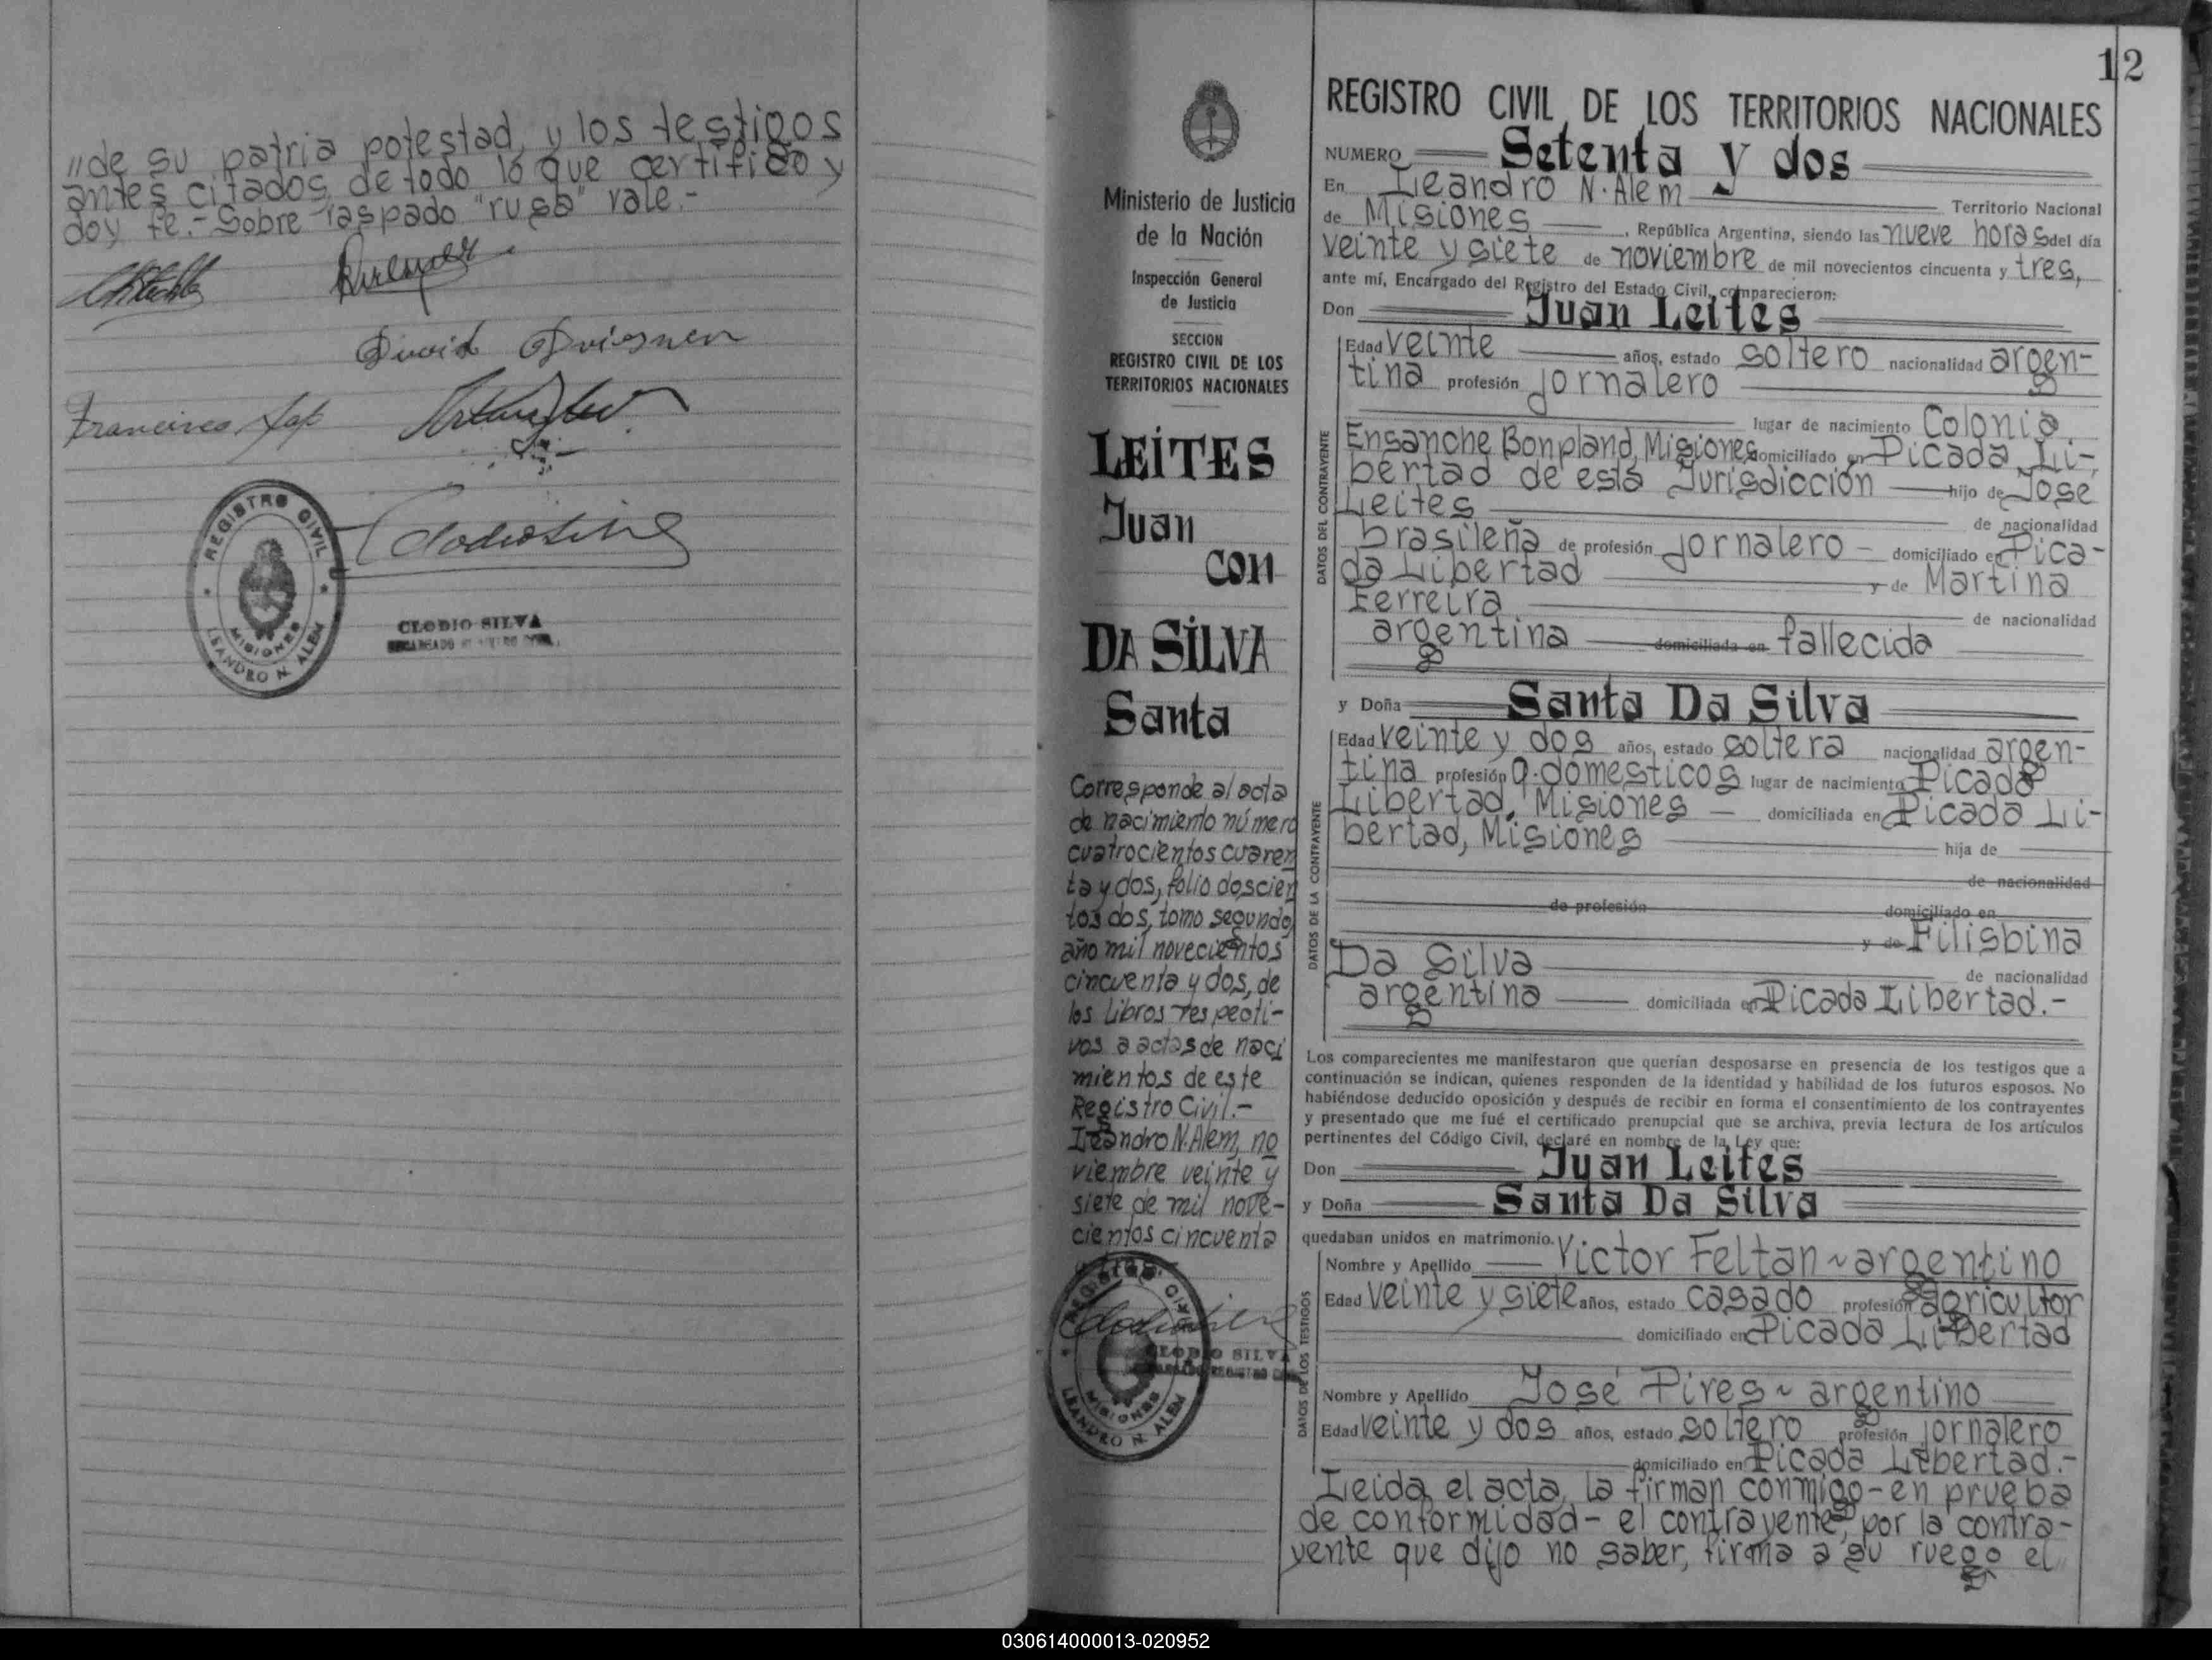 "de su patria potestad, y los testigos
antes citados, de todo lo que certifico y
doy fe.- Sobre raspado "rusa" vale.-
David
Francisco
REGISTRO CIVIL
MISIONES
LEANDRO N. ALEM
CLODIO SILVA
12
REGISTRO CIVIL DE LOS TERRITORIOS NACIONALES
Ministerio de Justicia
de la Nación
Inspección General
de Justicia
SECCION
REGISTRO CIVIL DE LOS
TERRITORIOS NACIONALES
LEITES
Juan
con
DA SILVA
Santa
Corresponde al acta
de nacimiento número
cuatrocientos cuaren
ta y dos, folio doscien
tos dos, tomo segundo,
año mil novecientos
cincuenta y dos, de
los libros respecti-
vos a actas de naci
mientos de este
Registro Civil.-
Leandro N. Alem, no
viembre veinte y
siete de mil nove-
cientos cincuenta
REGISTRO CIVIL
CLODIO SILVA
MISIONES
LEANDRO N. ALEM
NUMERO Setenta y dos
En Leandro N. Alem Territorio Nacional
de Misiones, República Argentina, siendo las nueve horas del día
veinte y siete de noviembre de mil novecientos cincuenta y tres,
ante mí, Encargado del Registro del Estado Civil, comparecieron:
Don Juan Leites
DATOS DEL CONTRAYENTE
Edad veinte años, estado soltero nacionalidad argen-
tina profesión jornalero
lugar de nacimiento Colonia
Ensanche Bonpland, Misiones domiciliado en Picada Li-
bertad de esta Jurisdicción hijo de José
Leites de nacionalidad
brasileña de profesión jornalero - domiciliado en Pica-
da Libertad y de Martina
Ferreira de nacionalidad
argentina domiciliada en fallecida
y Doña Santa Da Silva
DATOS DE LA CONTRAYENTE
Edad veinte y dos años, estado soltera nacionalidad argen-
tina profesión q. domesticos lugar de nacimiento Picada
Libertad, Misiones - domiciliada en Picada Li-
bertad, Misiones hija de
de nacionalidad
de profesión domiciliado en
y de Filisbina
Da Silva de nacionalidad
argentina domiciliada en Picada Libertad.-
Los comparecientes me manifestaron que querían desposarse en presencia de los testigos que a
continuación se indican, quienes responden de la identidad y habilidad de los futuros esposos. No
habiéndose deducido oposición y después de recibir en forma el consentimiento de los contrayentes
y presentado que me fué el certificado prenupcial que se archiva, previa lectura de los artículos
pertinentes del Código Civil, declaré en nombre de la Ley que:
Don Juan Leites
y Doña Santa Da Silva
quedaban unidos en matrimonio.
DATOS DE LOS TESTIGOS
Nombre y Apellido Victor Feltan ~ argentino
Edad veinte y siete años, estado casado profesión agricultor
domiciliado en Picada Libertad
Nombre y Apellido José Pires ~ argentino
Edad veinte y dos años, estado soltero profesión jornalero
domiciliado en Picada Libertad.-
Leida el acta, la firman conmigo - en prueba
de conformidad - el contrayente, por la contra-
yente que dijo no saber, firma a su ruego el
030614000013-020952